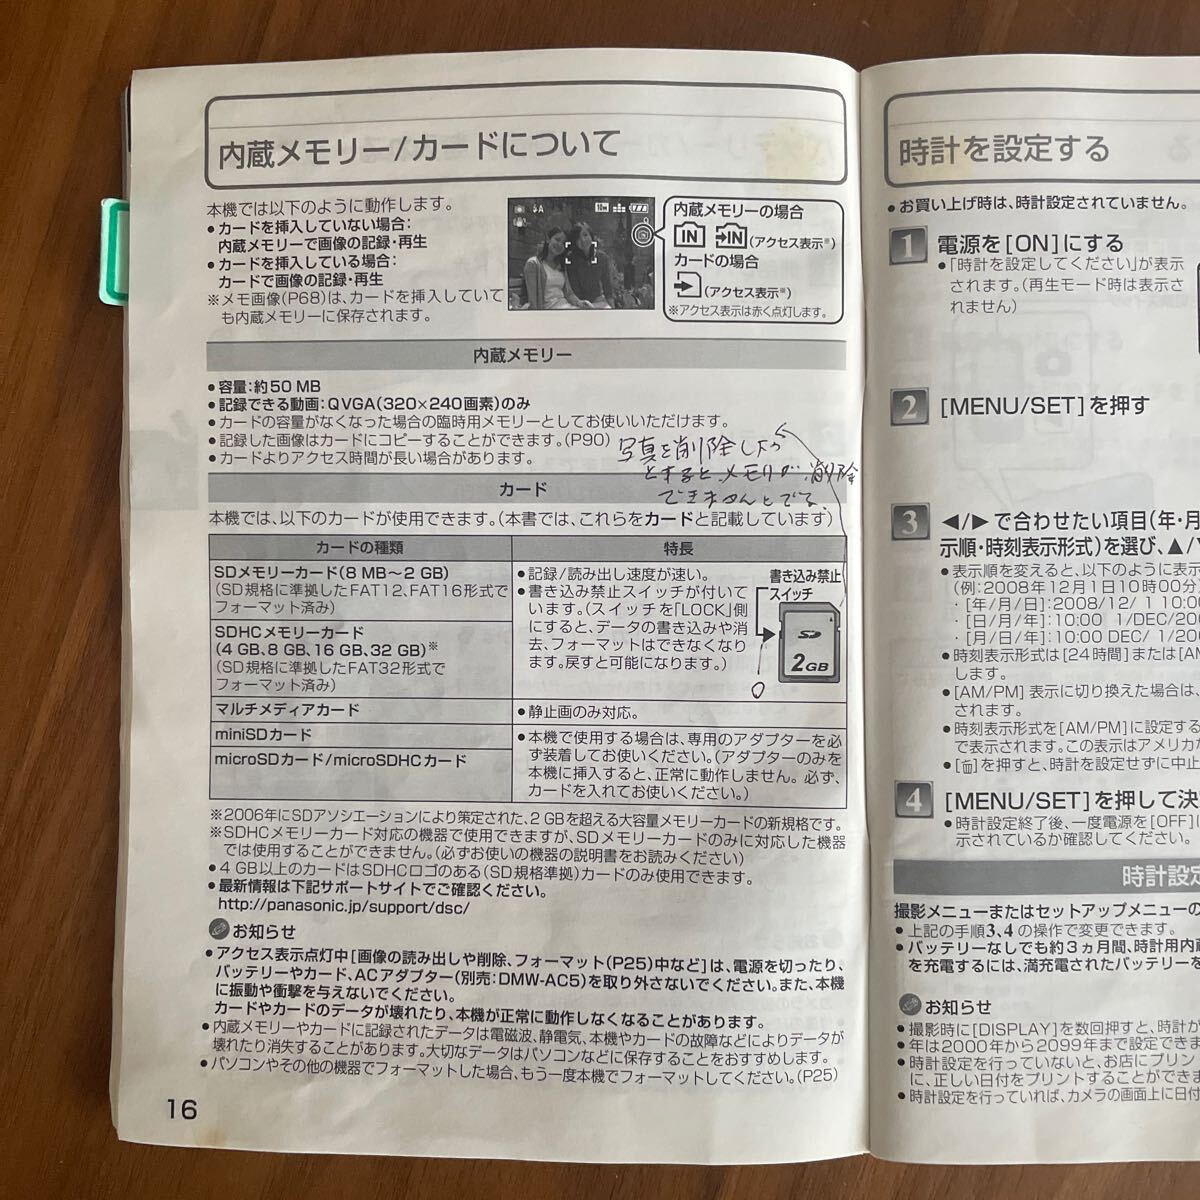 内蔵メモリー/カードについて
本機では以下のように動作します。
●カードを挿入していない場合:
内蔵メモリーで画像の記録・再生
●カードを挿入している場合:
カードで画像の記録・再生
※メモ画像(P68)は、カードを挿入していて
も内蔵メモリーに保存されます。
内蔵メモリーの場合
IN IN (アクセス表示※)
カードの場合
(アクセス表示※)
※アクセス表示は赤く点灯します。
内蔵メモリー
●容量:約50 MB
●記録できる動画:QVGA(320×240画素)のみ
●カードの容量がなくなった場合の臨時用メモリーとしてお使いいただけます。
●記録した画像はカードにコピーすることができます。(P90)
●カードよりアクセス時間が長い場合があります。
写真を削除しよう
とすると メモリが 削除
できませんとでる
カード
本機では、以下のカードが使用できます。(本書では、これらをカードと記載しています)
カードの種類
特長
SDメモリーカード(8 MB~2 GB)
(SD規格に準拠したFAT12、FAT16形式で
フォーマット済み)
SDHCメモリーカード
(4 GB、8 GB、16 GB、32 GB)※
(SD規格に準拠したFAT32形式で
フォーマット済み)
●記録/読み出し速度が速い。
●書き込み禁止スイッチが付いて
います。(スイッチを「LOCK」側
にすると、データの書き込みや消
去、フォーマットはできなくなり
ます。戻すと可能になります。)
書き込み禁止
スイッチ
2GB
マルチメディアカード
●静止画のみ対応。
miniSDカード
microSDカード/microSDHCカード
●本機で使用する場合は、専用のアダプターを必
ず装着してお使いください。(アダプターのみを
本機に挿入すると、正常に動作しません。必ず、
カードを入れてお使いください。)
※2006年にSDアソシエーションにより策定された、2 GBを超える大容量メモリーカードの新規格です。
※SDHCメモリーカード対応の機器で使用できますが、SDメモリーカードのみに対応した機器
では使用することができません。(必ずお使いの機器の説明書をお読みください)
●4 GB以上のカードはSDHCロゴのある(SD規格準拠)カードのみ使用できます。
●最新情報は下記サポートサイトでご確認ください。
http://panasonic.jp/support/dsc/
お知らせ
●アクセス表示点灯中[画像の読み出しや削除、フォーマット(P25)中など]は、電源を切ったり、
バッテリーやカード、ACアダプター(別売:DMW-AC5)を取り外さないでください。また、本機
に振動や衝撃を与えないでください。
カードやカードのデータが壊れたり、本機が正常に動作しなくなることがあります。
●内蔵メモリーやカードに記録されたデータは電磁波、静電気、本機やカードの故障などによりデータが
壊れたり消失することがあります。大切なデータはパソコンなどに保存することをおすすめします。
●パソコンやその他の機器でフォーマットした場合、もう一度本機でフォーマットしてください。(P25)
16
時計を設定する
●お買い上げ時は、時計設定されていません。
1 電源を[ON]にする
●「時計を設定してください」が表示
されます。(再生モード時は表示さ
れません)
2 [MENU/SET]を押す
3 ◀/▶で合わせたい項目(年・月
示順・時刻表示形式)を選び、▲/
●表示順を変えると、以下のように表示
(例:2008年12月1日10時00分
・[年/月/日]:2008/12/ 1 10:0
・[日/月/年]:10:00 1/DEC/200
・[月/日/年]:10:00 DEC/ 1/20
●時刻表示形式は[24時間]または[AM
します。
●[AM/PM]表示に切り換えた場合は、
されます。
●時刻表示形式を[AM/PM]に設定する
で表示されます。この表示はアメリカ
●[ ]を押すと、時計を設定せずに中止
4 [MENU/SET]を押して決
●時計設定終了後、一度電源を[OFF]に
示されているか確認してください。
時計設定
撮影メニューまたはセットアップメニューの
●上記の手順3、4の操作で変更できます。
●バッテリーなしでも約3ヵ月間、時計用内蔵
を充電するには、満充電されたバッテリーを
お知らせ
●撮影時に[DISPLAY]を数回押すと、時計が
●年は2000年から2099年まで設定できま
●時計設定を行っていないと、お店にプリン
に、正しい日付をプリントすることができま
●時計設定を行っていれば、カメラの画面上に日付